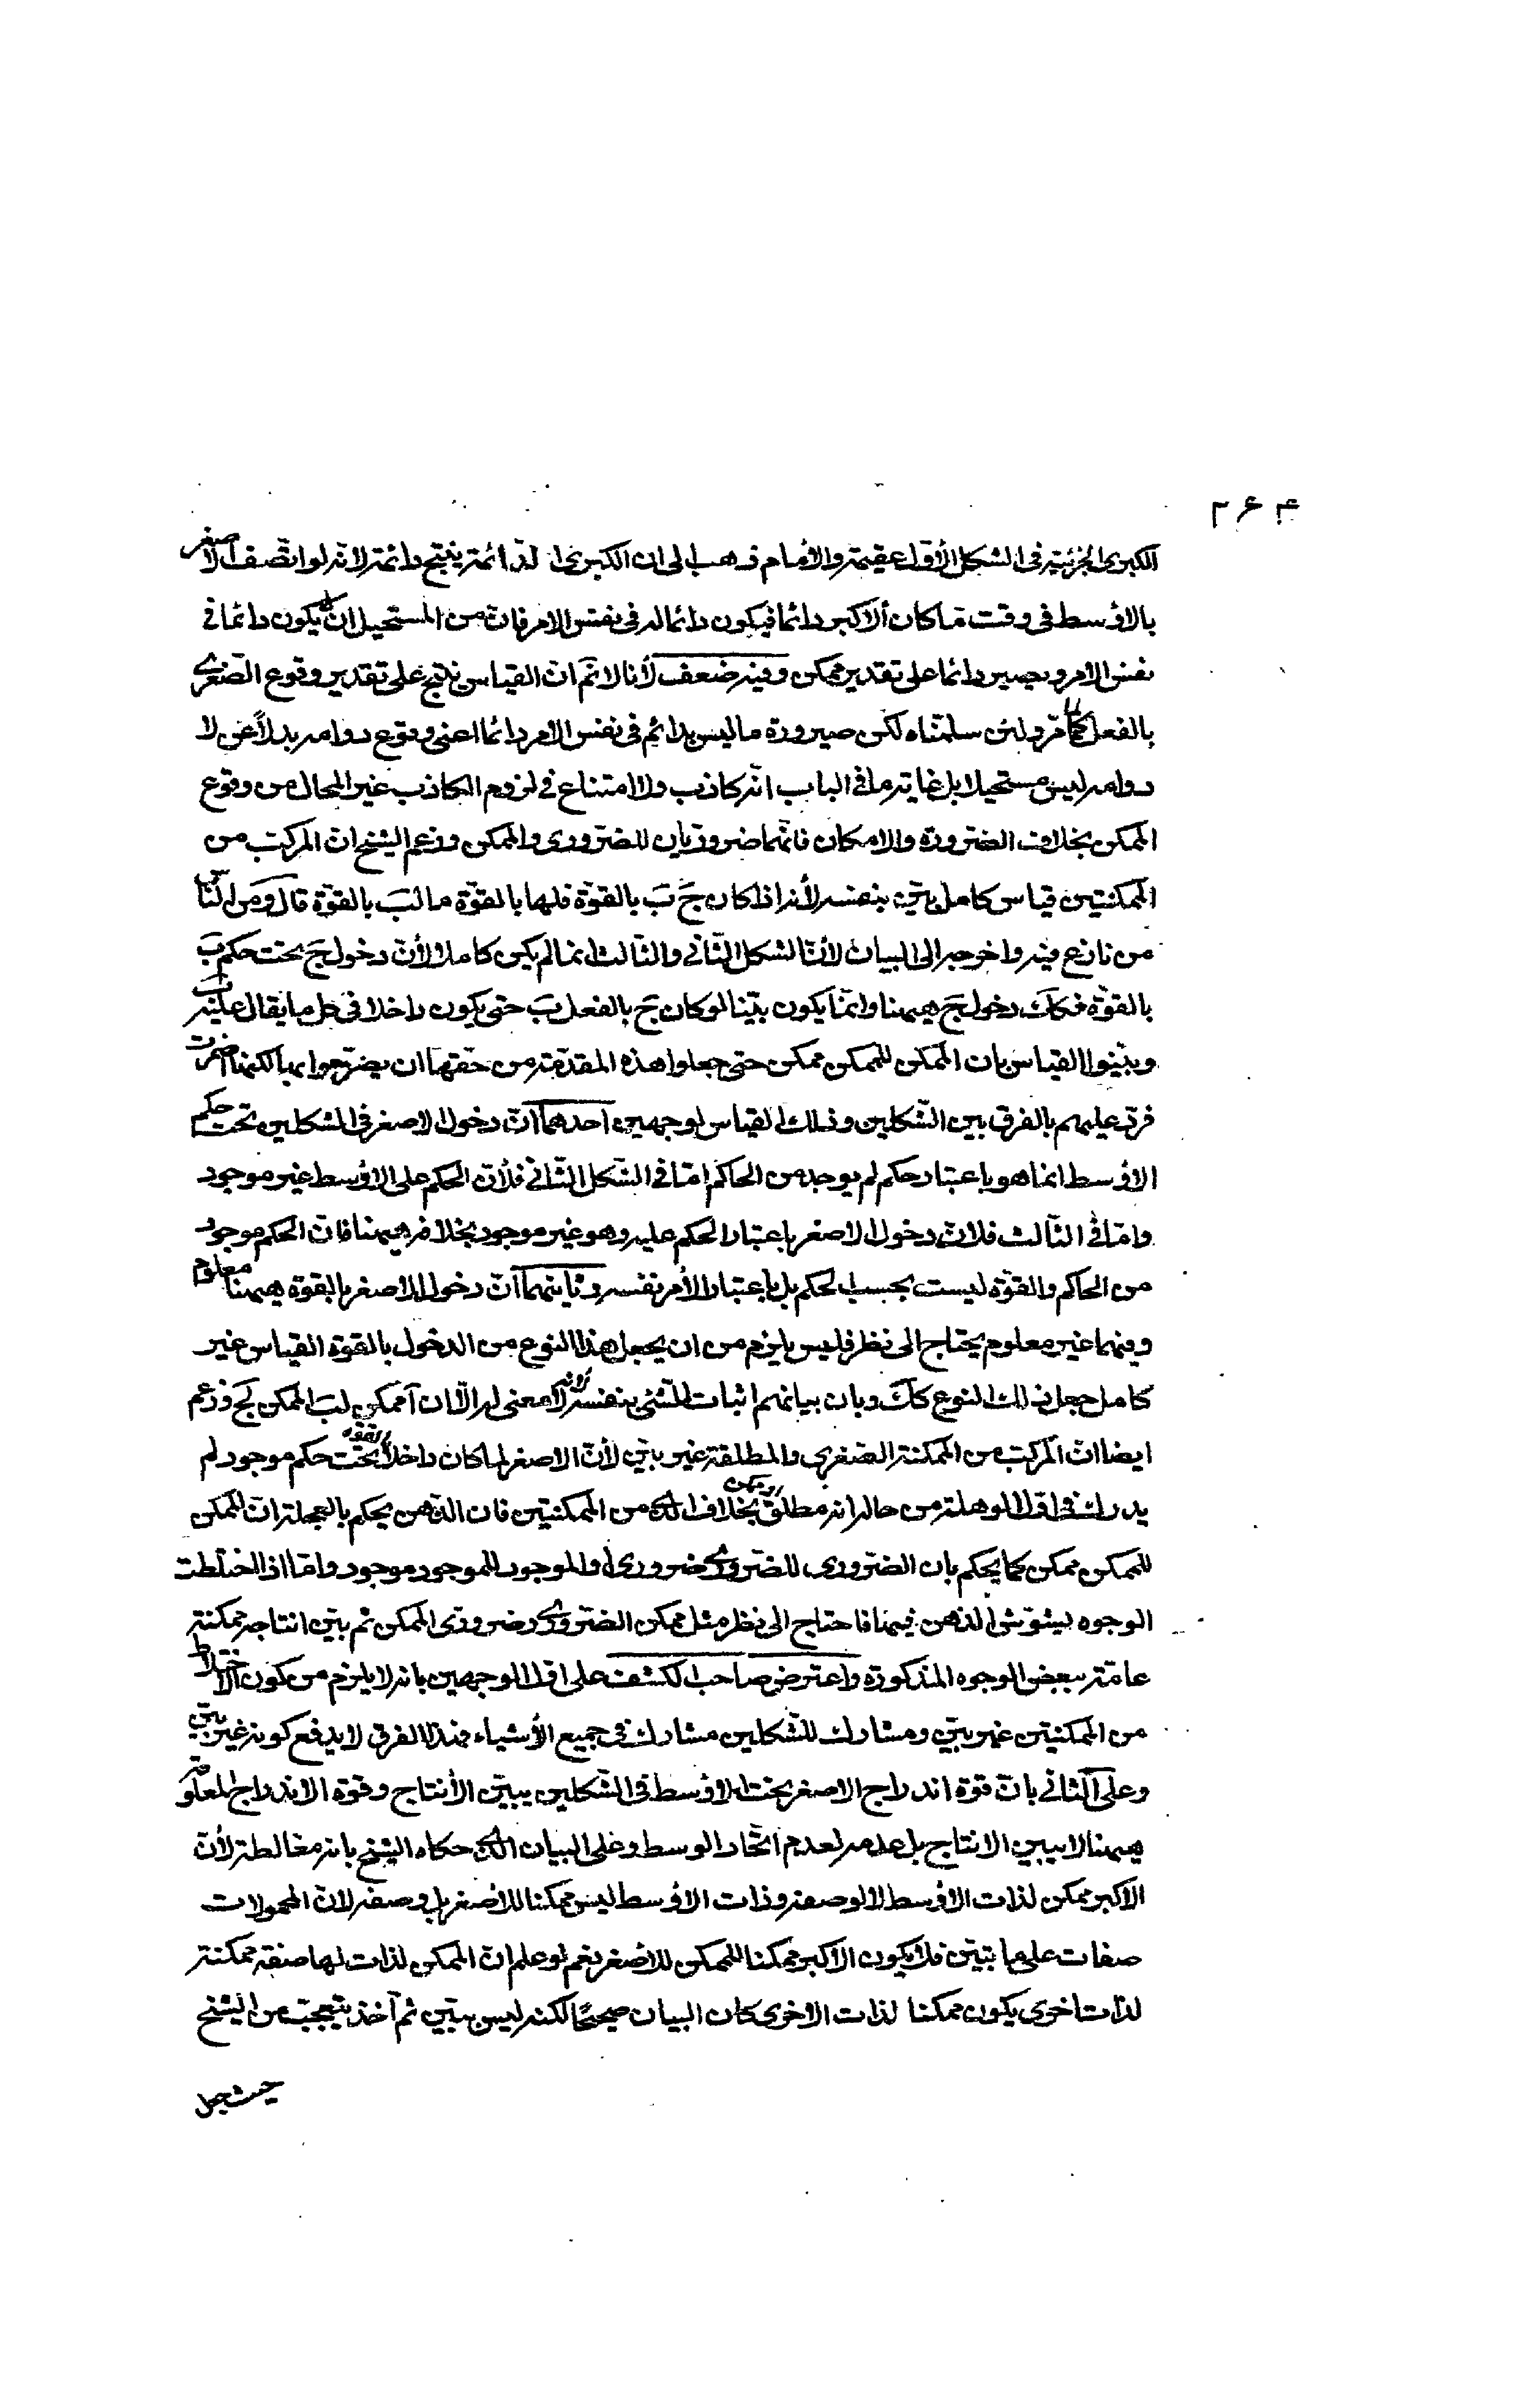 ۲۶۴
الكبرى الجزئية فى الشكل الأوّل عقيمة والأمام ذهب الى ان الكبرى الدّائمة ينتج دائمة لانّه لو اتّصف الاصغر
بالاوسط فى وقت مّا كان الاكبر دائما فيكون دائما له فى نفس الامر فانّ من المستحيل ان لا يكون دائما فى
نفس الامر ويصير دائما على تقدير ممكن وفيه ضعف لأنا لا نمّ انّ القياس ينتج على تقدير وقوع الصّغرى
بالفعل كما مّر ولئن سلمّناه لكن صيرورة ما ليس بدائم فى نفس الامر دائما اعنى وقوع دوامه بدلاً عن لا
دوامه ليس مستحيلا بل غاية ما فى الباب انّه كاذب ولا امتناع فى لزوم الكاذب غير المحال من وقوع
الممكن بخلاف الضّرورة والامكان فانّهما ضروريان للضّرورى والممكن وزعم الشيخ انّ المركّب من
الممكنتين قياس كامل بيّن بنفسه لأنه اذا كان جَ بَ بالقوّة فلها بالقوّة ما لبَ بالقوّة قال ومن النّاس
من نازع فيه واخرجه الى البيان لأنّ الشكل الثّانى والثّالث انما لم يكن كاملا لأنّ دخول جَ تحت حكم بَ
بالقوّة فكك دخول جَ هيهنا وانّما يكون بيّنا لو كان جَ بالفعل بَ حتى يكون داخلا فى كل ما يقال عليه بَ
وبيّنوا القياس بان الممكن للممكن ممكن حتى جعلوا هذه المقدّمة من حقّها ان يصّرحوا بها لكنها اضمرت
فردّ عليهم بالفرق بين الشّكلين وذلك القياس لوجهين احدهما انّ دخول الاصغر فى الشكلين تحت حكم
الاوسط انما هو باعتبار حكم لم يوجد من الحاكم امّا فى الشّكل الثّانى فلأنّ الحكم على الاوسط غير موجود
وامّا فى الثّالث فلانّ دخول الاصغر باعتبار الحكم عليه وهو غير موجود بخلافه هيهنا فانّ الحكم موجود
من الحاكم والقوّة ليست بحسب الحكم بل باعتبار الأمر نفسه وثانيهما انّ دخول الاصغر بالقوة هيهنا معلوم
وفيهما غير معلوم يحتاج الى نظر فليس يلزم من ان يجعل هذا النوع من الدخول بالقوة القياس غير
كامل جعل ذلك النوع كك وبان بيانهم اثبات للشئ بنفسه لانه لا معنى له الّا ان آ ممكن لبَ الممكن لجَ وزعم
ايضا انّ المركّب من الممكنة الصّغرى والمطلقة غير بيّن لأنّ الاصغر لما كان داخلا بالقوّة تحت حكم موجود لم
يدرك فى اوّل الوهلة من حاله انه مطلق او ممكن بخلاف ذلك من الممكنتين فان الذّهن يحكم بالعجلة انّ الممكن
للممكن ممكن كما يحكم بان الضّرورى للضّرورى ضرورى والموجود للموجود موجود وامّا اذا اختلطت
الوجوه ليشوّش الذهن فيهنا فاحتاج الى نظر مثل ممكن الضّرورى وضرورىّ الممكن ثم بيّن انتاجه ممكنة
عامّة ببعض الوجوه المذكورة واعترض صاحب الكشف على اوّل الوجهين بانه لا يلزم من كون الاختلاط
من الممكنتين غير بيّن ومشارك للشّكلين مشارك فى جميع الأشياء فهذا الفرق لا يدفع كونه غير بيّن
وعلى الثانى بانّ قوّة اندراج الاصغر تحت الاوسط فى الشّكلين يبيّن الأنتاج وقوة الاندراج المعلومة
هيهنا لا يبين الانتاج بل عدمه لعدم اتّحاد الوسط وعلى البيان الذى حكاه الشيخ بانه مغالطة لأنّ
الاكبر ممكن لذات الاوسط لا لوصفه وذات الاوسط ليس ممكنا للأصغر بل وصفه لانّ المحمولات
صفات على ما تبيّن فلا يكون الاكبر ممكنا للممكن للأصغر نعم لو علم ان الممكن لذات لها صفة ممكنة
لذات اخرى يكون ممكنا لذات الاخرى كان البيان صحيحًا لكنه ليس ببيّن ثم آخذ يتعجّب من الشيخ
حيث جعل